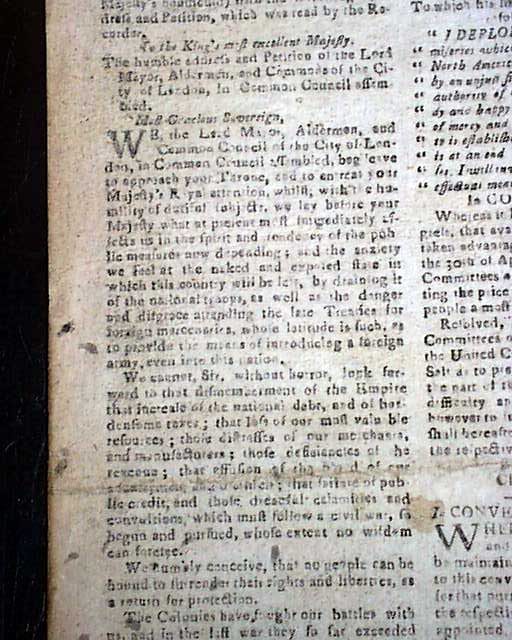 Majesty's
dress and Petition, which was read by the Re-
corder.
To the King's most excellent Majesty.
The humble address and Petition of the Lord
Mayor, Aldermen, and Commons of the Ci-
ty of London, in Common Council assem-
bled.
Most Gracious Sovereign,
WE, the Lord Mayor, Aldermen, and
Common Council of the City of Lon-
don, in Common Council assembled, beg leave
to approach your Throne, and to entreat your
Majesty's Royal attention, whilst, with the hu-
mility of dutiful subjects, we lay before your
Majesty what at present most immediately af-
fects us in the spirit and tendency of the pub-
lic measures now depending; and the anxiety
we feel at the naked and exposed state in
which this country will be left, by draining it
of the national troops, as well as the danger
and disgrace attending the late Treaties for
foreign mercenaries, whose latitude is such, as
to provide the means of introducing a foreign
army, even into this nation.
We cannot, Sir, without horror, look for-
ward to that dismemberment of the Empire
that increase of the national debt, and of bur-
densome taxes; that loss of our most valuable
resources; those distresses of our merchants,
and manufacturers; those deficiencies of the
revenue; that effusion of the blood of our
countrymen, and brethren; that failure of pub-
lic credit, and those dreadful calamities and
convulsions, which must follow a civil war, so
begun and pursued, whose extent no wisdom
can foresee.
We humbly conceive, that no people can be
bound to surrender their rights and liberties, as
a return for protection.
The Colonies have fought our battles with
us, and in the last war they so far exceeded
To which his
"I DEPLO
miseries which
North Americ
by an unjust
authority of
dy and happy
of mercy and
is establish
is at an end
I will
effectual mea
In CO
Whereas it
gress, that
taken advantag
the 30th of Ap
Committees
ting the price
people a most
Resolved,
Committees o
the United C
Salt as to pre
the part of
difficulty ap
however to
shall hereafter
the respective
CONVE
WHER
and
be maintain
to this conv
for that pur
the respecti
appointed